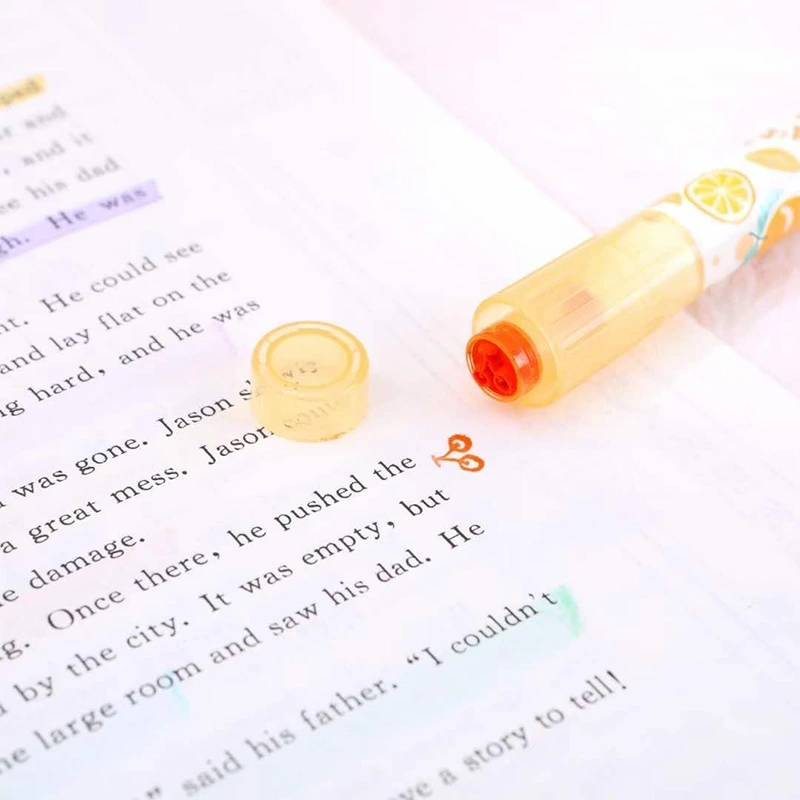 ped
r and
, and it
ee his dad
gh. He was
nt. He could see
and lay flat on the
ng hard, and he was
was gone. Jason
a great mess. Jason
e damage.
g. Once there, he pushed the
by the city. It was empty, but
he large room and saw his dad. He
" said his father. "I couldn't
ve a story to tell!